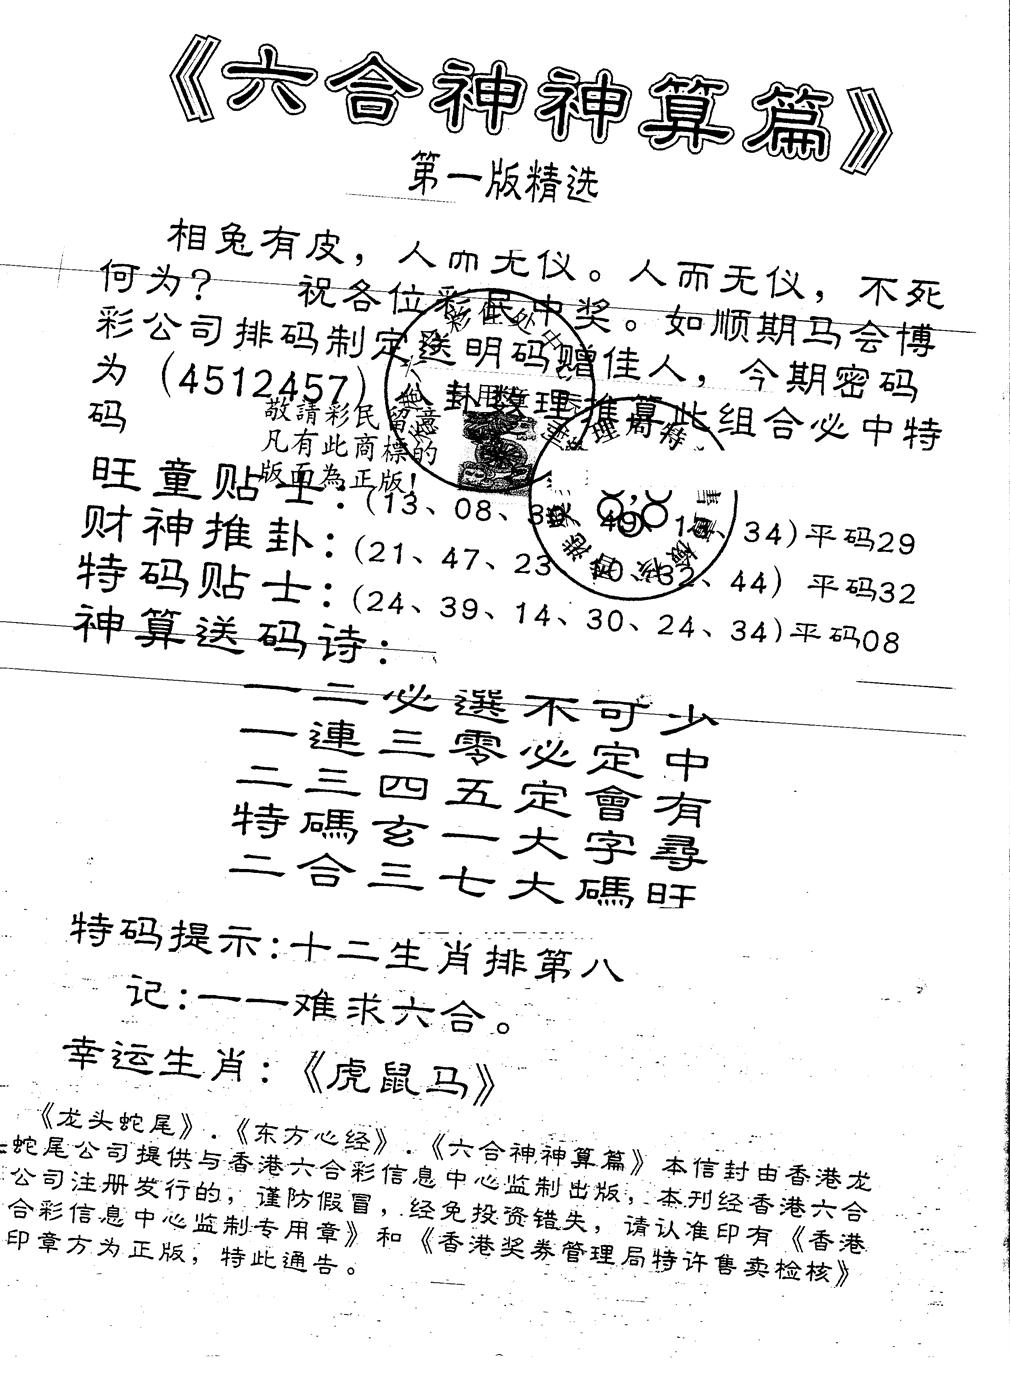 《六合神神算篇》
第一版精选
相兔有皮，人而无仪。人而无仪，不死
何为？ 祝各位彩民中奖。如顺期马会博
彩公司排码制定送明码赠佳人，今期密码
为（4512457）八卦数理推算此组合必中特
码
敬請彩民留意
凡有此商標的
版面為正版!
旺童贴士:(13、08、3 49、1 、34)平码29
财神推卦:(21、47、23 0、32、44) 平码32
特码贴士:(24、39、14、30、24、34)平码08
神算送码诗:
一二必選不可少
一連三零必定中
二三四五定會有
特碼玄一大字尋
二合三七大碼旺
特码提示:十二生肖排第八
记:一一难求六合。
幸运生肖:《虎鼠马》
《龙头蛇尾》.《东方心经》.《六合神神算篇》本信封由香港龙
头蛇尾公司提供与香港六合彩信息中心监制出版，本刊经香港六合
公司注册发行的，谨防假冒，经免投资错失，请认准印有《香港
合彩信息中心监制专用章》和《香港奖券管理局特许售卖检核》
印章方为正版，特此通告。